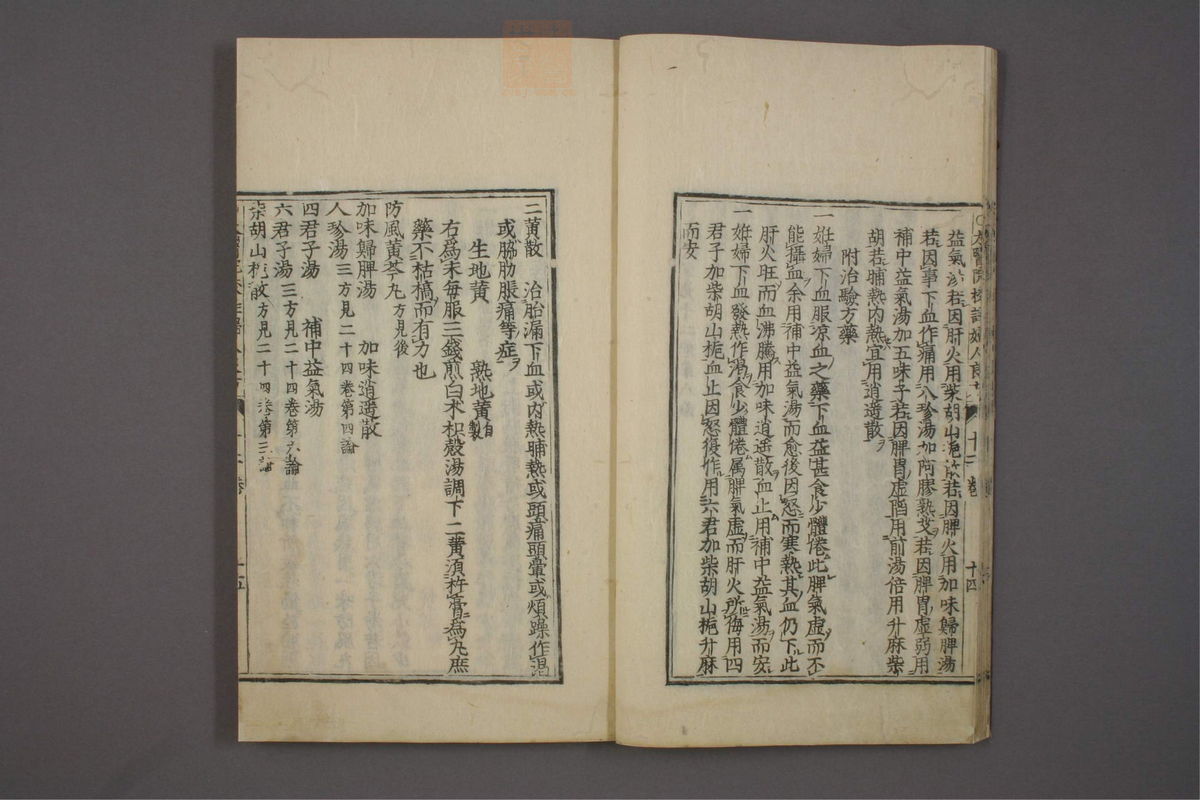 太醫院校註婦人良 十二卷 十四
益氣湯若因肝火用柴胡山梔散若因脾火用加味歸脾湯
若因事下血作痛用八珍湯加阿膠熟艾若因脾胃虛弱用
補中益氣湯加五味子若因脾胃虛陷用前湯倍用升麻柴
胡若晡熱内熱宜用逍遥散
附治驗方藥
一姙婦下血服凉血之藥下血益甚食少體倦此脾氣虛而不
能攝血余用補中益氣湯而愈後因怒而寒熱其血仍下此
肝火旺而血沸騰用加味逍遥散血止用補中益氣湯而安
一姙婦下血發熱作渴食少體倦属脾氣虛而肝火所侮用四
君子加柴胡山梔血止因怒復作用六君加柴胡山梔升麻
而安
二黄散 治胎漏下血或内熱晡熱或頭痛頭暈或煩躁作渴
或脇肋脹痛等症
生地黄 熟地黄自製
右爲末每服三錢煎白术枳殻湯調下二黄須杵膏為丸庶
藥不枯槁而有力也
防風黄芩丸方見後
加味歸脾湯 加味逍遥散
人珍湯三方見二十四卷第四論
四君子湯 補中益氣湯
六君子湯三方見二十四卷第六論
柴胡山梔散方見二十四卷第三論